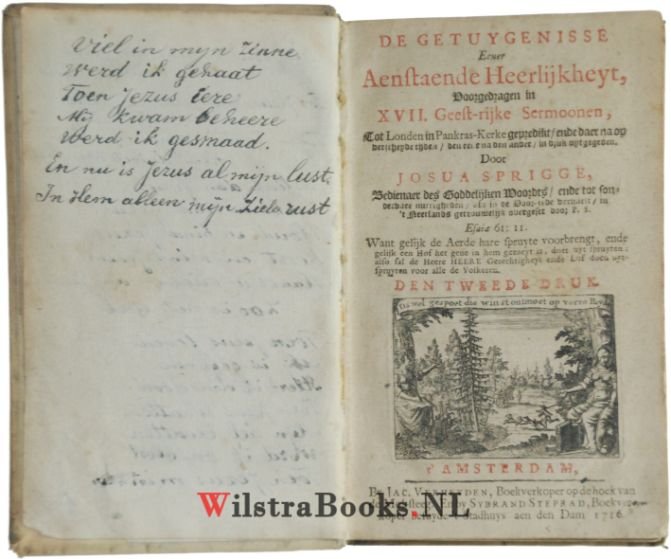 Viel in myn Zinne
Werd ik gehaat
Toen Jezus eere
My kwam beheere
Werd ik gesmaad.
En nu is Jezus al mijn lust.
In Hem alleen mijn Ziele rust
DE GETUYGENISSE
Eener
Aenstaende Heerlijkheyt,
Voorgedragen in
XVII. Geest-rijke Sermoonen,
Tot Londen in Pankras-Kerke gepredikt / ende daer na op
verscheyde tyden / den een e na den ander / in druk uytgegeven.
Door
JOSUA SPRIGGE,
Bedienaer des Goddelijken Woordts / ende tot
in de Voor-rede vermaelt / in
't Neerlands getrouwelijk overgeset door
Esaiæ 61: 11.
Want gelijk de Aerde hare spruyte voorbrengt, ende
gelijk een Hof het gene in hem gezaeyt is, doet uyt-spruyten:
alsoo sal de Heere HEERE Gerechtigheyt ende Lof doen uyt-
spruyten voor alle de Volkeren.
DEN TWEEDE DRUK.
gespoet die win et ontmoet op
t'AMSTERDAM,
By JAC. Boekverkoper op de hoek van
SYBRAND
Stadhuys aen den Dam 1716.
WilstraBooks.NL